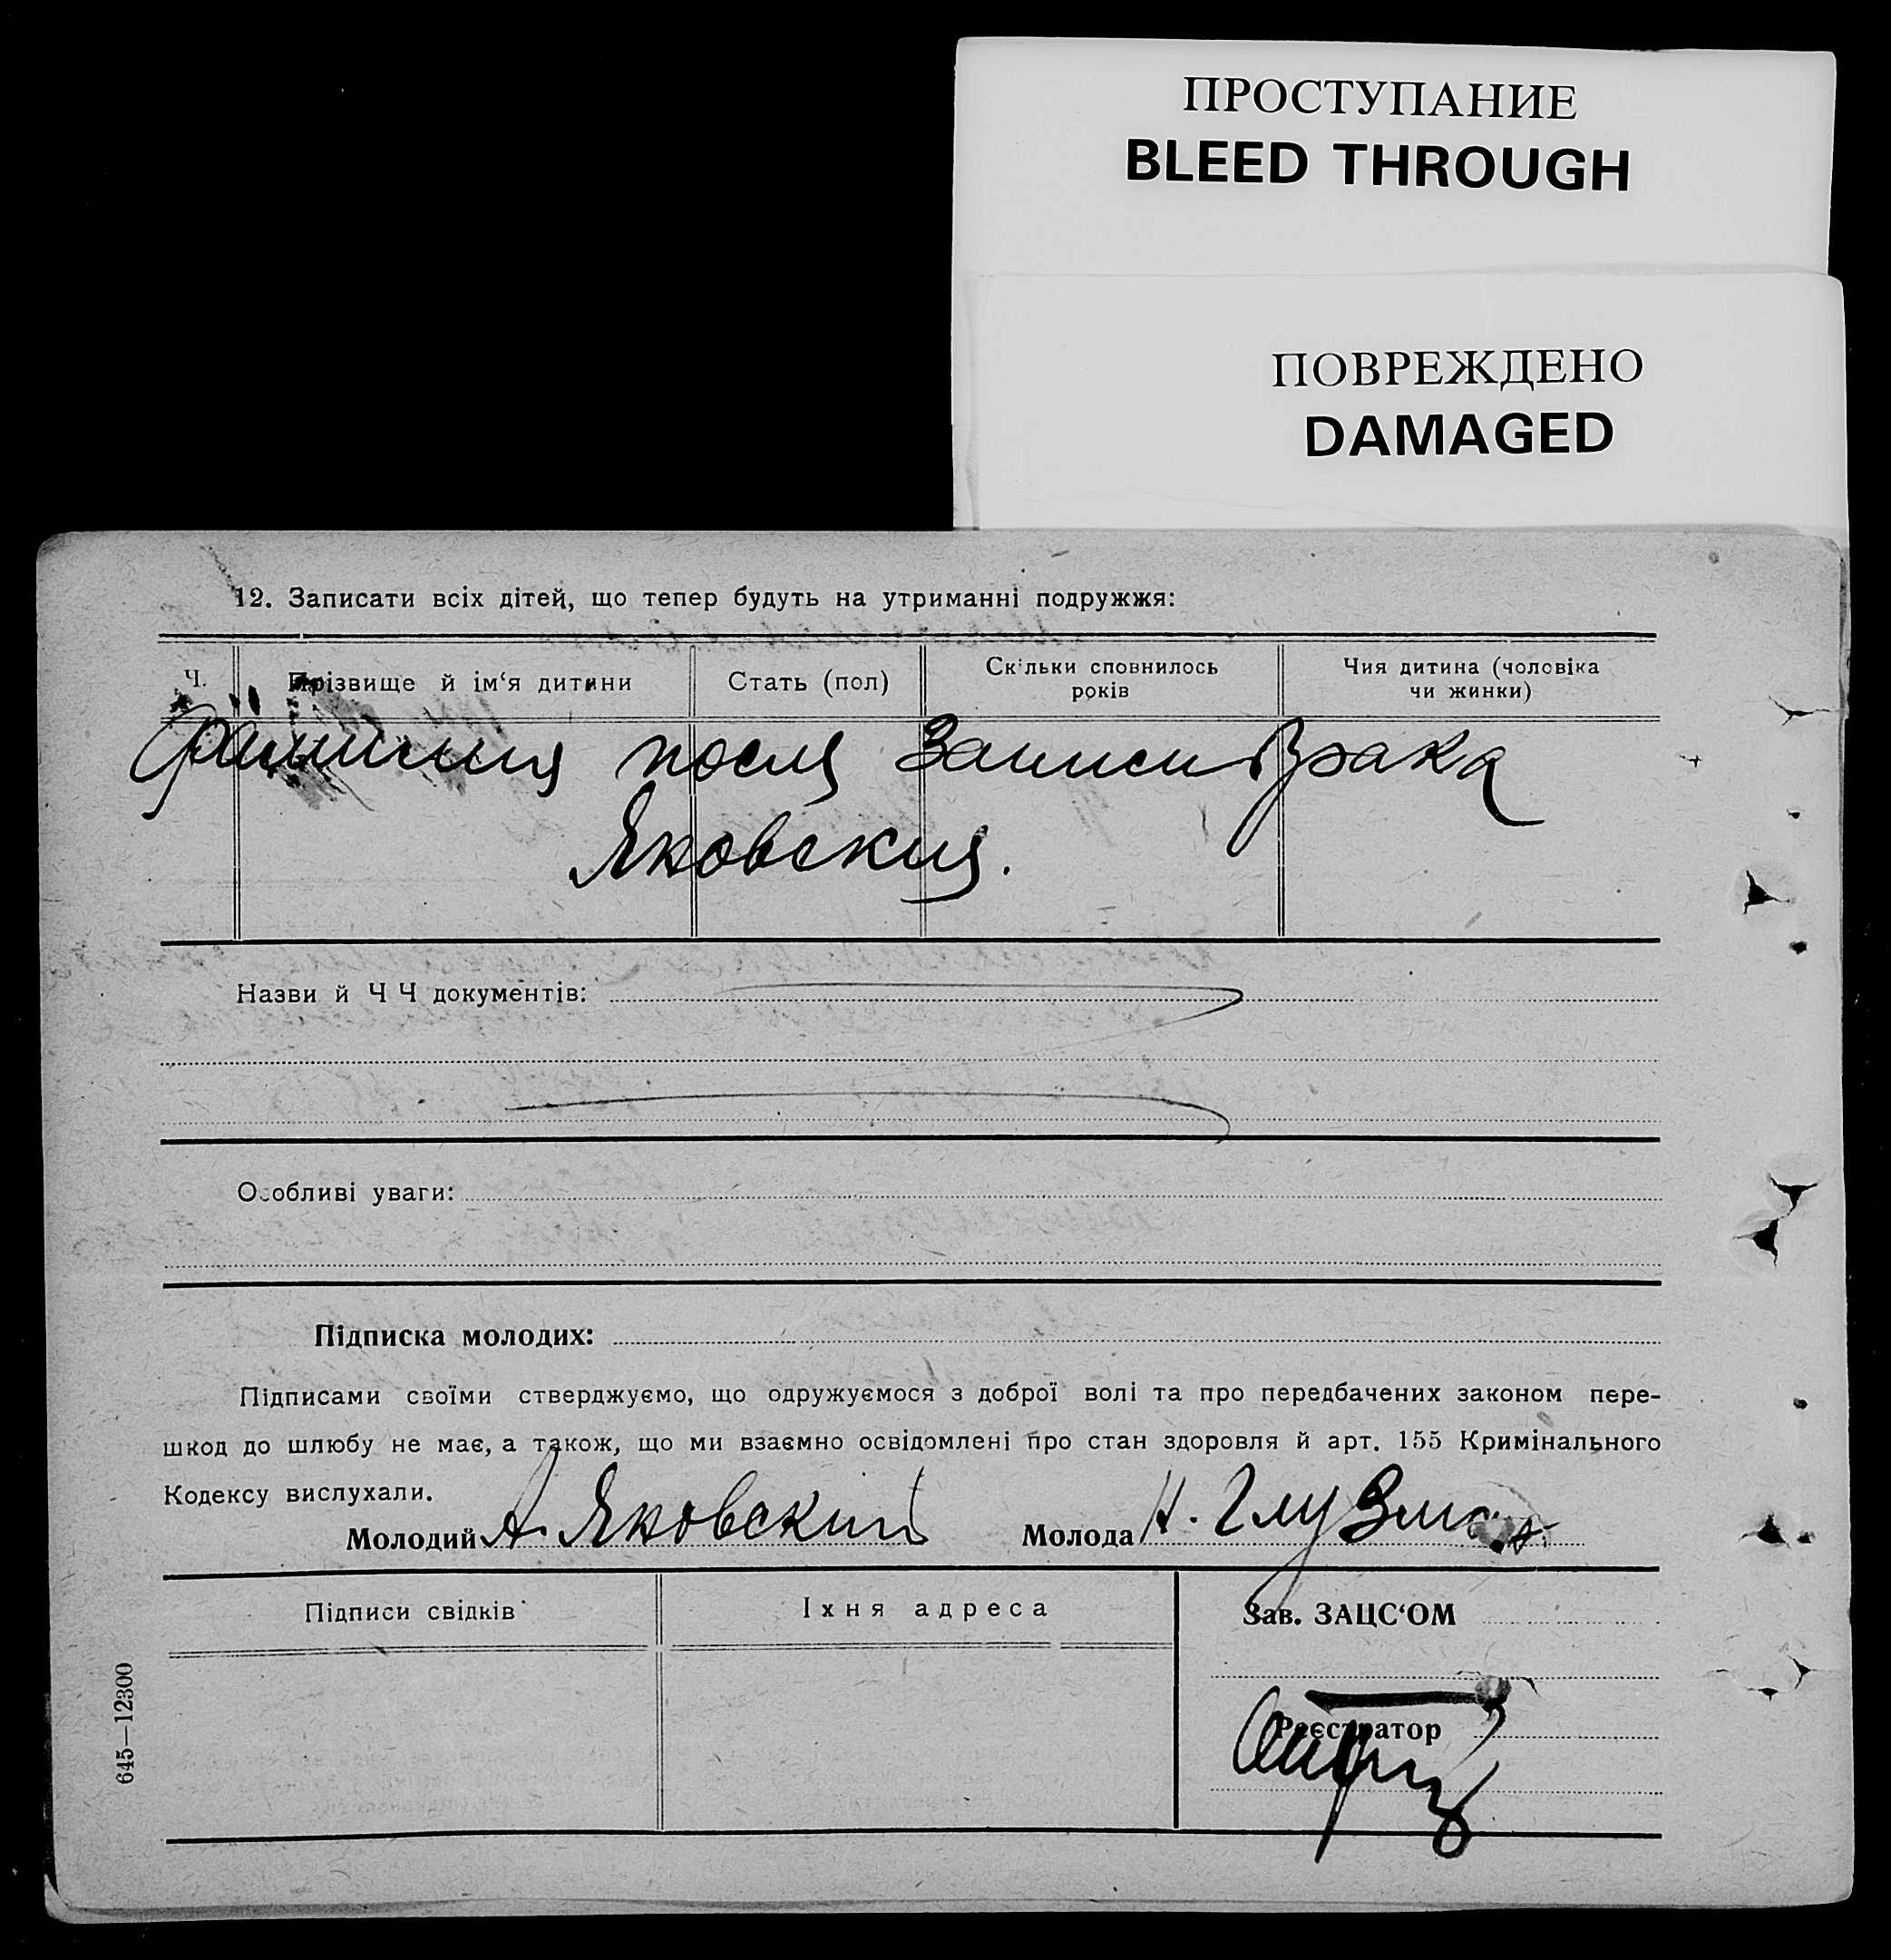 ПРОСТУПАНИЕ
BLEED THROUGH
ПОВРЕЖДЕНО
DAMAGED
12. Записати всіх дітей, що тепер будуть на утриманні подружжя:
Ч.
Прізвище й ім‘я дитини
Стать (пол)
Скільки сповнилось
років
Чия дитина (чоловіка
чи жинки)
Фамилия после Записи Брака
Яковский.
Назви й Ч Ч документів:
Особливі уваги:
Підписка молодих:
Підписами своїми стверджуємо, що одружуємося з доброї волі та про передбачених законом пере-
шкод до шлюбу не має, а також, що ми взаємно освідомлені про стан здоровля й арт. 155 Кримінального
Кодексу вислухали.
Молодий А. Яковский Молода Н. Глузман
Підписи свідків
Їхня адреса
Зав. ЗАЦС‘ОМ
Реєстратор
645—12300